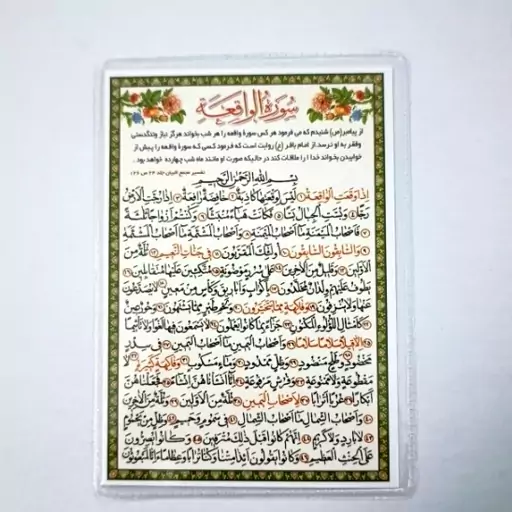 سورة الواقعة
از پیامبر(ص) شنیدم که می فرمود هر کس سورهٔ واقعه را هر شب بخواند هرگز نیاز وتنگدستی
وفقر به او نرسد. از امام باقر (ع) روایت است که فرمود کسی که سورهٔ واقعه را پیش از
خوابیدن بخواند خدا را ملاقات کند در حالیکه صورت او مانند ماه شب چهارده خواهد بود.
تفسیر مجمع البیان
بسم الله الرحمن الرحیم
إذا وقعت الواقعة لیس لوقعتها کاذبة خافضة رافعة إذا رجت الأرض
رجا وبست الجبال بسا فکانت هباء منبثا وکنتم أزواجا ثلثة
فأصحاب المیمنة ما أصحاب المیمنة وأصحاب المشئمة ما أصحاب المشئمة
والسابقون السابقون أولئک المقربون فی جنات النعیم ثلة من
الأولین وقلیل من الآخرین علی سرر موضونة متکئین علیها متقابلین
یطوف علیهم ولدان مخلدون بأکواب وأباریق وکأس من معین لا یصدعون
عنها ولا ینزفون وفاکهة مما یتخیرون ولحم طیر مما یشتهون وحور عین
کأمثال اللؤلؤ المکنون جزاء بما کانوا یعملون لا یسمعون فیها لغوا ولا تأثیما
إلا قیلا سلاما سلاما وأصحاب الیمین ما أصحاب الیمین فی سدر
مخضود وطلح منضود وظل ممدود وماء مسکوب وفاکهة کثیرة لا
مقطوعة ولا ممنوعة وفرش مرفوعة إنا أنشأناهن إنشاء فجعلناهن
أبکارا عربا أترابا لأصحاب الیمین ثلة من الأولین وثلة من الآخرین
وأصحاب الشمال ما أصحاب الشمال فی سموم وحمیم وظل من یحموم
لا بارد ولا کریم إنهم کانوا قبل ذلک مترفین وکانوا یصرون
علی الحنث العظیم وکانوا یقولون أئذا متنا وکنا ترابا وعظاما أئنا لمبعوثون